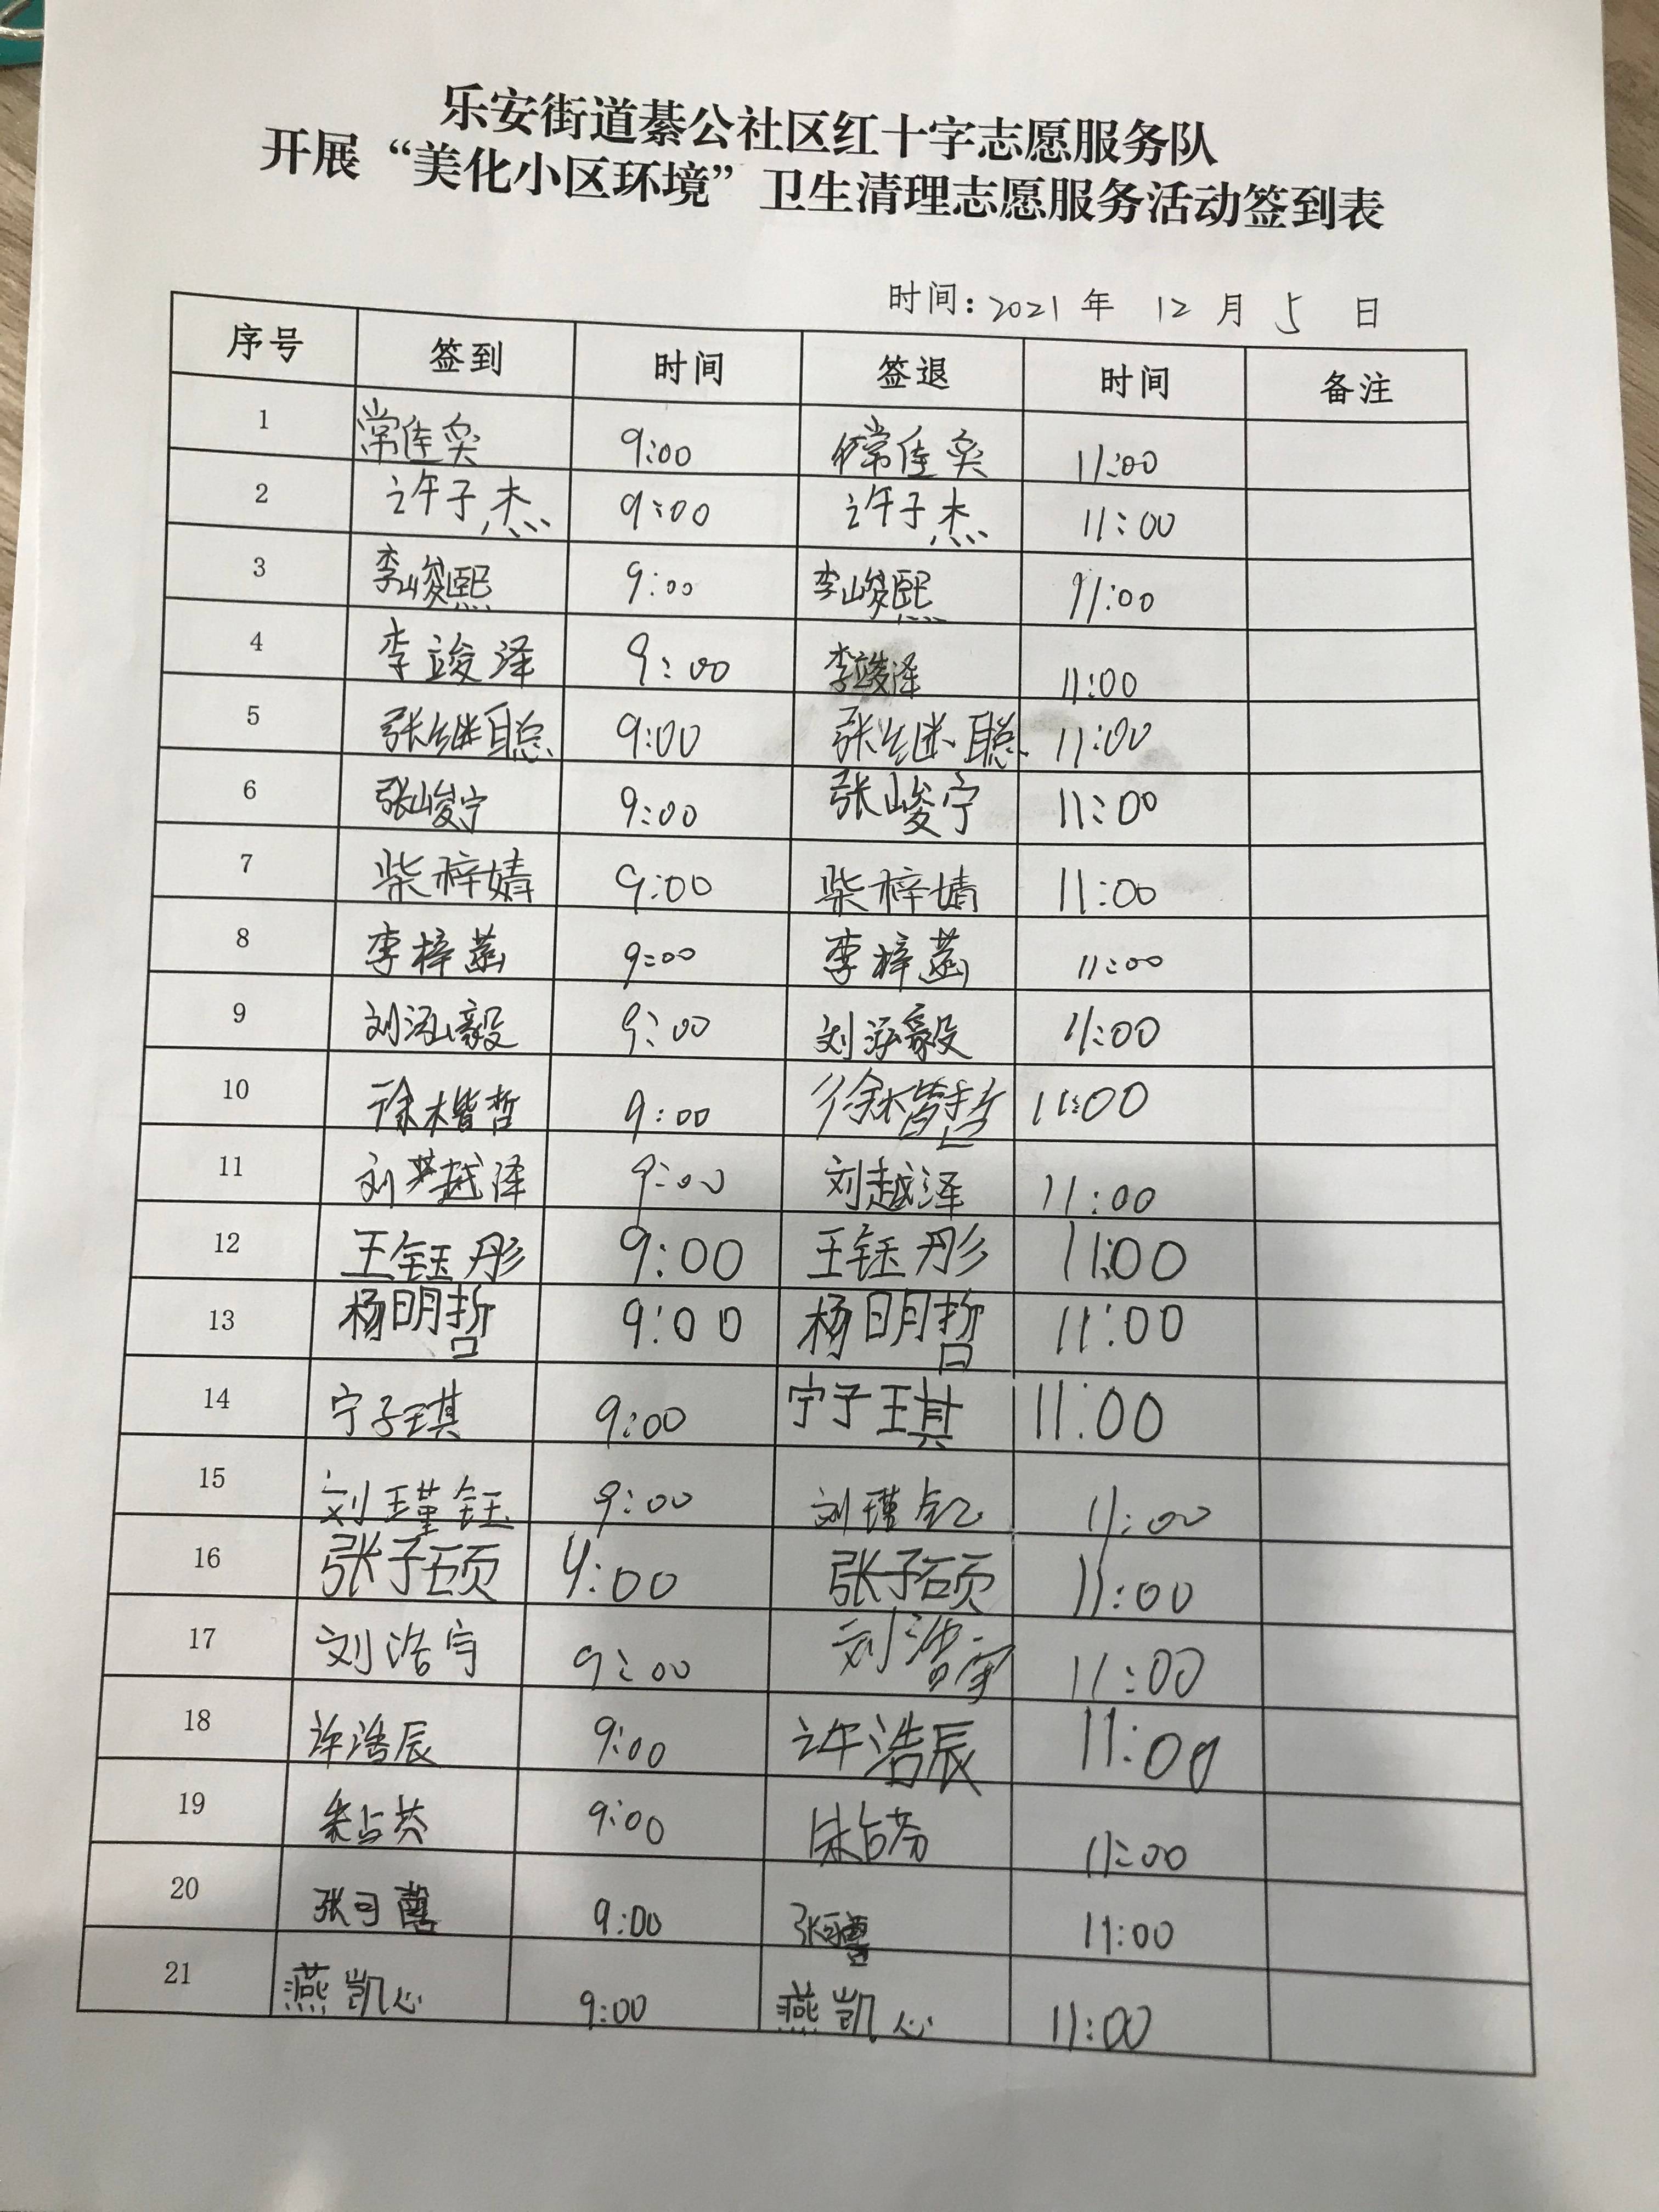 乐安街道綦公社区红十字志愿服务队
开展“美化小区环境”卫生清理志愿服务活动签到表
时间：2021年 12月 5日
序号 签到 时间 签退 时间 备注
1 常佳奕 9:00 常佳奕 11:00
2 许子杰 9:00 许子杰 11:00
3 李峻熙 9:00 李峻熙 11:00
4 李竣泽 9:00 李竣泽 11:00
5 张继聪 9:00 张继聪 11:00
6 张峻宁 9:00 张峻宁 11:00
7 柴梓婧 9:00 柴梓婧 11:00
8 李梓菡 9:00 李梓菡 11:00
9 刘泓毅 9:00 刘泓毅 11:00
10 徐楷哲 9:00 徐楷哲 11:00
11 刘越泽 9:00 刘越泽 11:00
12 王钰彤 9:00 王钰彤 11:00
13 杨明哲 9:00 杨明哲 11:00
14 宁子琪 9:00 宁子琪 11:00
15 刘瑾钰 9:00 刘瑾钇 11:00
16 张子硕 9:00 张子硕 11:00
17 刘浩宇 9:00 刘浩宇 11:00
18 许浩辰 9:00 许浩辰 11:00
19 9:00 11:00
20 9:00 11:00
21 燕凯心 9:00 燕凯心 11:00